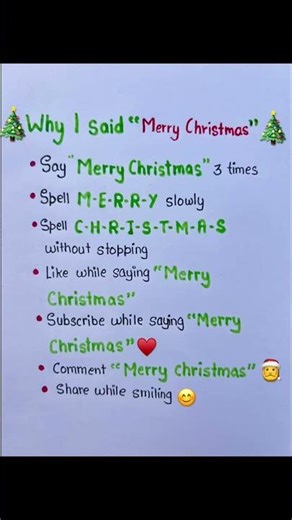 🎄Why I said “Merry Christmas”🎄
• Say "Merry Christmas" 3 times
• Spell M-E-R-R-Y slowly
• Spell C-H-R-I-S-T-M-A-S
without stopping
• Like while saying “Merry
Christmas”
• Subscribe while saying “Merry
Christmas”♥️
• Comment “Merry Christmas”🎅
• Share while smiling 😊